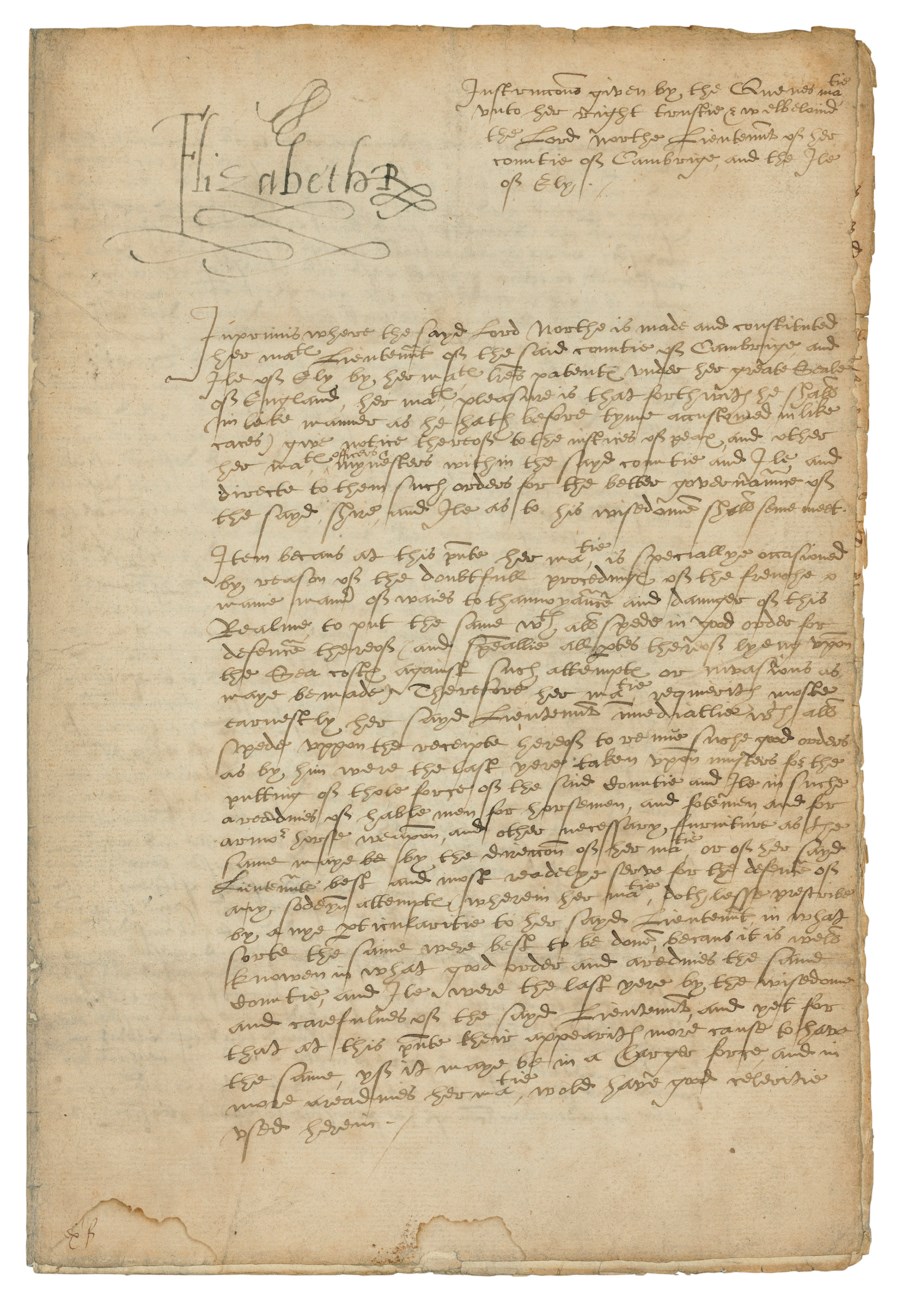 Elizabeth R
Instruccōns given by the Quenes matie
vnto her Right trustie & welbeloued
the Lord Northe Lieutennt of her
countie of Cambrige, and the Ile
of Ely.
Inprimis where the sayd Lord Northe is made and constituted
her mats Lieutennt of the said countie of Cambrige and
Ile of Ely by her mats lres patents vnder her greate Seale
of England, her mats pleasure is that forthwith he shall
in like manner as he hath before tyme accustomed in like
cases) give notice thereof to the iustices of peax and other
her mats officers mynesters within the sayd countie and Ile and
directe to them such orders for the better governaunce of
the sayd shire and Ile as to his wisedome shall seme meet.
Item becaus at this pnte her matie is speciallye occasioned
by reason of the doubtfull procedings of the frenche
manner of waies to thannoyaunce and daunger of this
Realme to put the same wth all spede in good order for
defence thereof (and speallie all ptes therof lyeng vppon
the Sea costs against such attempts or invasions as
maye be made) Therefore her matie requireth moste
earnestly her sayd Lieutennt imediatlie wth all
spede vppon the receipte hereof to renue suche good orders
as by him were the last yere taken vpon musters for the
putting of thole force of the said Countie and Ile in suche
areddines of hable men for horsemen, and fotemen and for
armor horse weapon, and other necessary furniture as the
same maye be by the direccōn of her matie or of her sayd
Lieutennte best and most readelye serve for the defence of
any sodeyn attempts wherein her matie doth lesse prescribe
by anye pticularitie to her sayd Lieutennt in what
sorte the same were best to be done, becaus it is well
knowen in what good order and aredines the same
Countie, and Ile were the last yere by the wisedome
and carefulnes of the sayd Lieutennt, and yet for
that at this pnte their appearith more cause to have
the same, yf it maye be in a Larger force and in
more areadines her matie, wold have good celeritie
vsed herein.